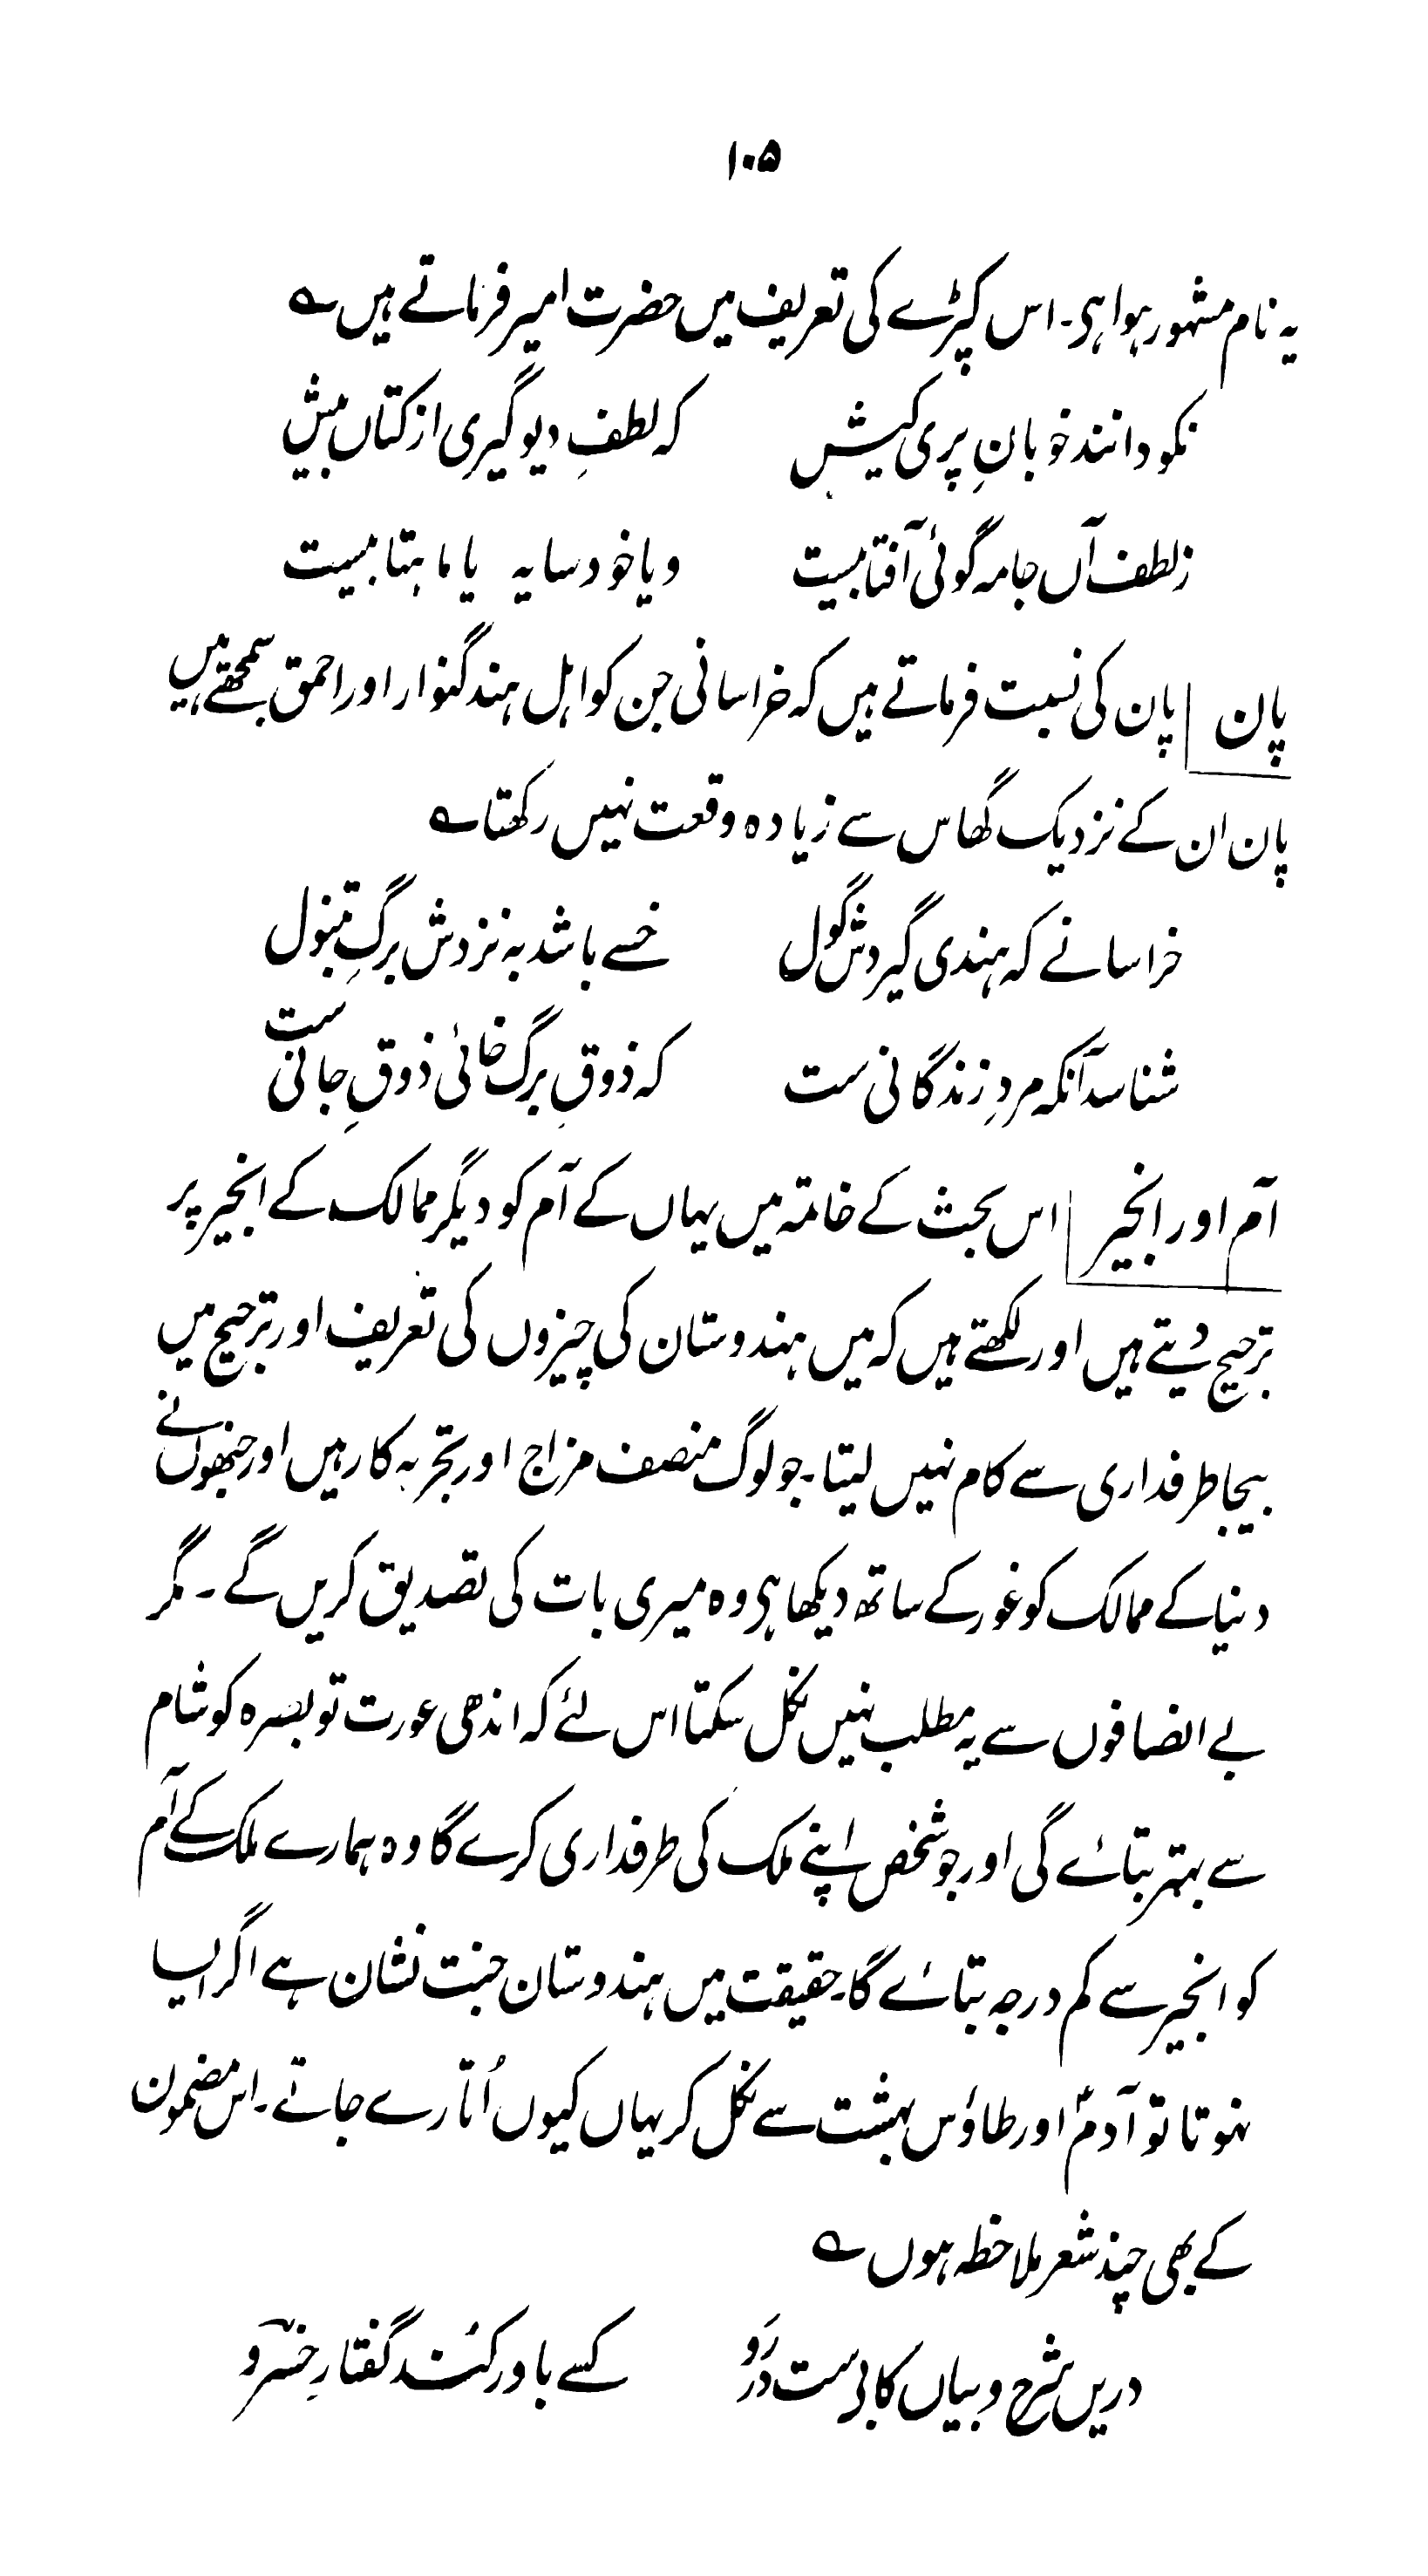 ۱۰۵
یہ نام مشہور ہوا ہی۔ اس کپڑے کی تعریف میں حضرت امیر فرماتے ہیں ؎
نکو دانند خوبانِ پری کیش کہ لطفِ دیو گیری از کتاں بیش
زلطف آں جامہ گوئی آفتابیست ویا خود سایہ یا ماہتابیست
پان پان کی نسبت فرماتے ہیں کہ خراسانی جن کو اہل ہند گنوار اور احمق سمجھتے ہیں
پان ان کے نزدیک گھاس سے زیادہ وقعت نہیں رکھتا ؎
خراسانے کہ ہندی گیردش گول خسے باشد بہ نزدش برگِ تنبول
شناسد آنکہ مردِ زندگانی ست کہ ذوقِ برگ خائی ذوقِ جانی ست
آم اور انجیر اس بحث کے خاتمہ میں یہاں کے آم کو دیگر ممالک کے انجیر پر
ترجیح دیتے ہیں اور لکھتے ہیں کہ میں ہندوستان کی چیزوں کی تعریف اور ترجیح میں
بیجا طرفداری سے کام نہیں لیتا۔ جو لوگ منصف مزاج اور تجربہ کار ہیں اور جنھوں نے
دنیا کے ممالک کو غور کے ساتھ دیکھا ہی وہ میری بات کی تصدیق کریں گے ۔ مگر
بے انصافوں سے یہ مطلب نہیں نکل سکتا اس لئے کہ اندھی عورت تو بصرہ کو شام
سے بہتر بتائے گی اور جو شخص اپنے ملک کی طرفداری کرے گا وہ ہمارے ملک کے آم
کو انجیر سے کم درجہ بتائے گا۔ حقیقت میں ہندوستان جنت نشان ہے اگر ایسا
نہوتا تو آدمؑ اور طاؤس بہشت سے نکل کر یہاں کیوں اُتارے جاتے۔ اس مضمون
کے بھی چند شعر ملاحظہ ہوں ؎
دریں شرح و بیاں کابی ست در رَو کسے باور کُند گفتارِ خسرو